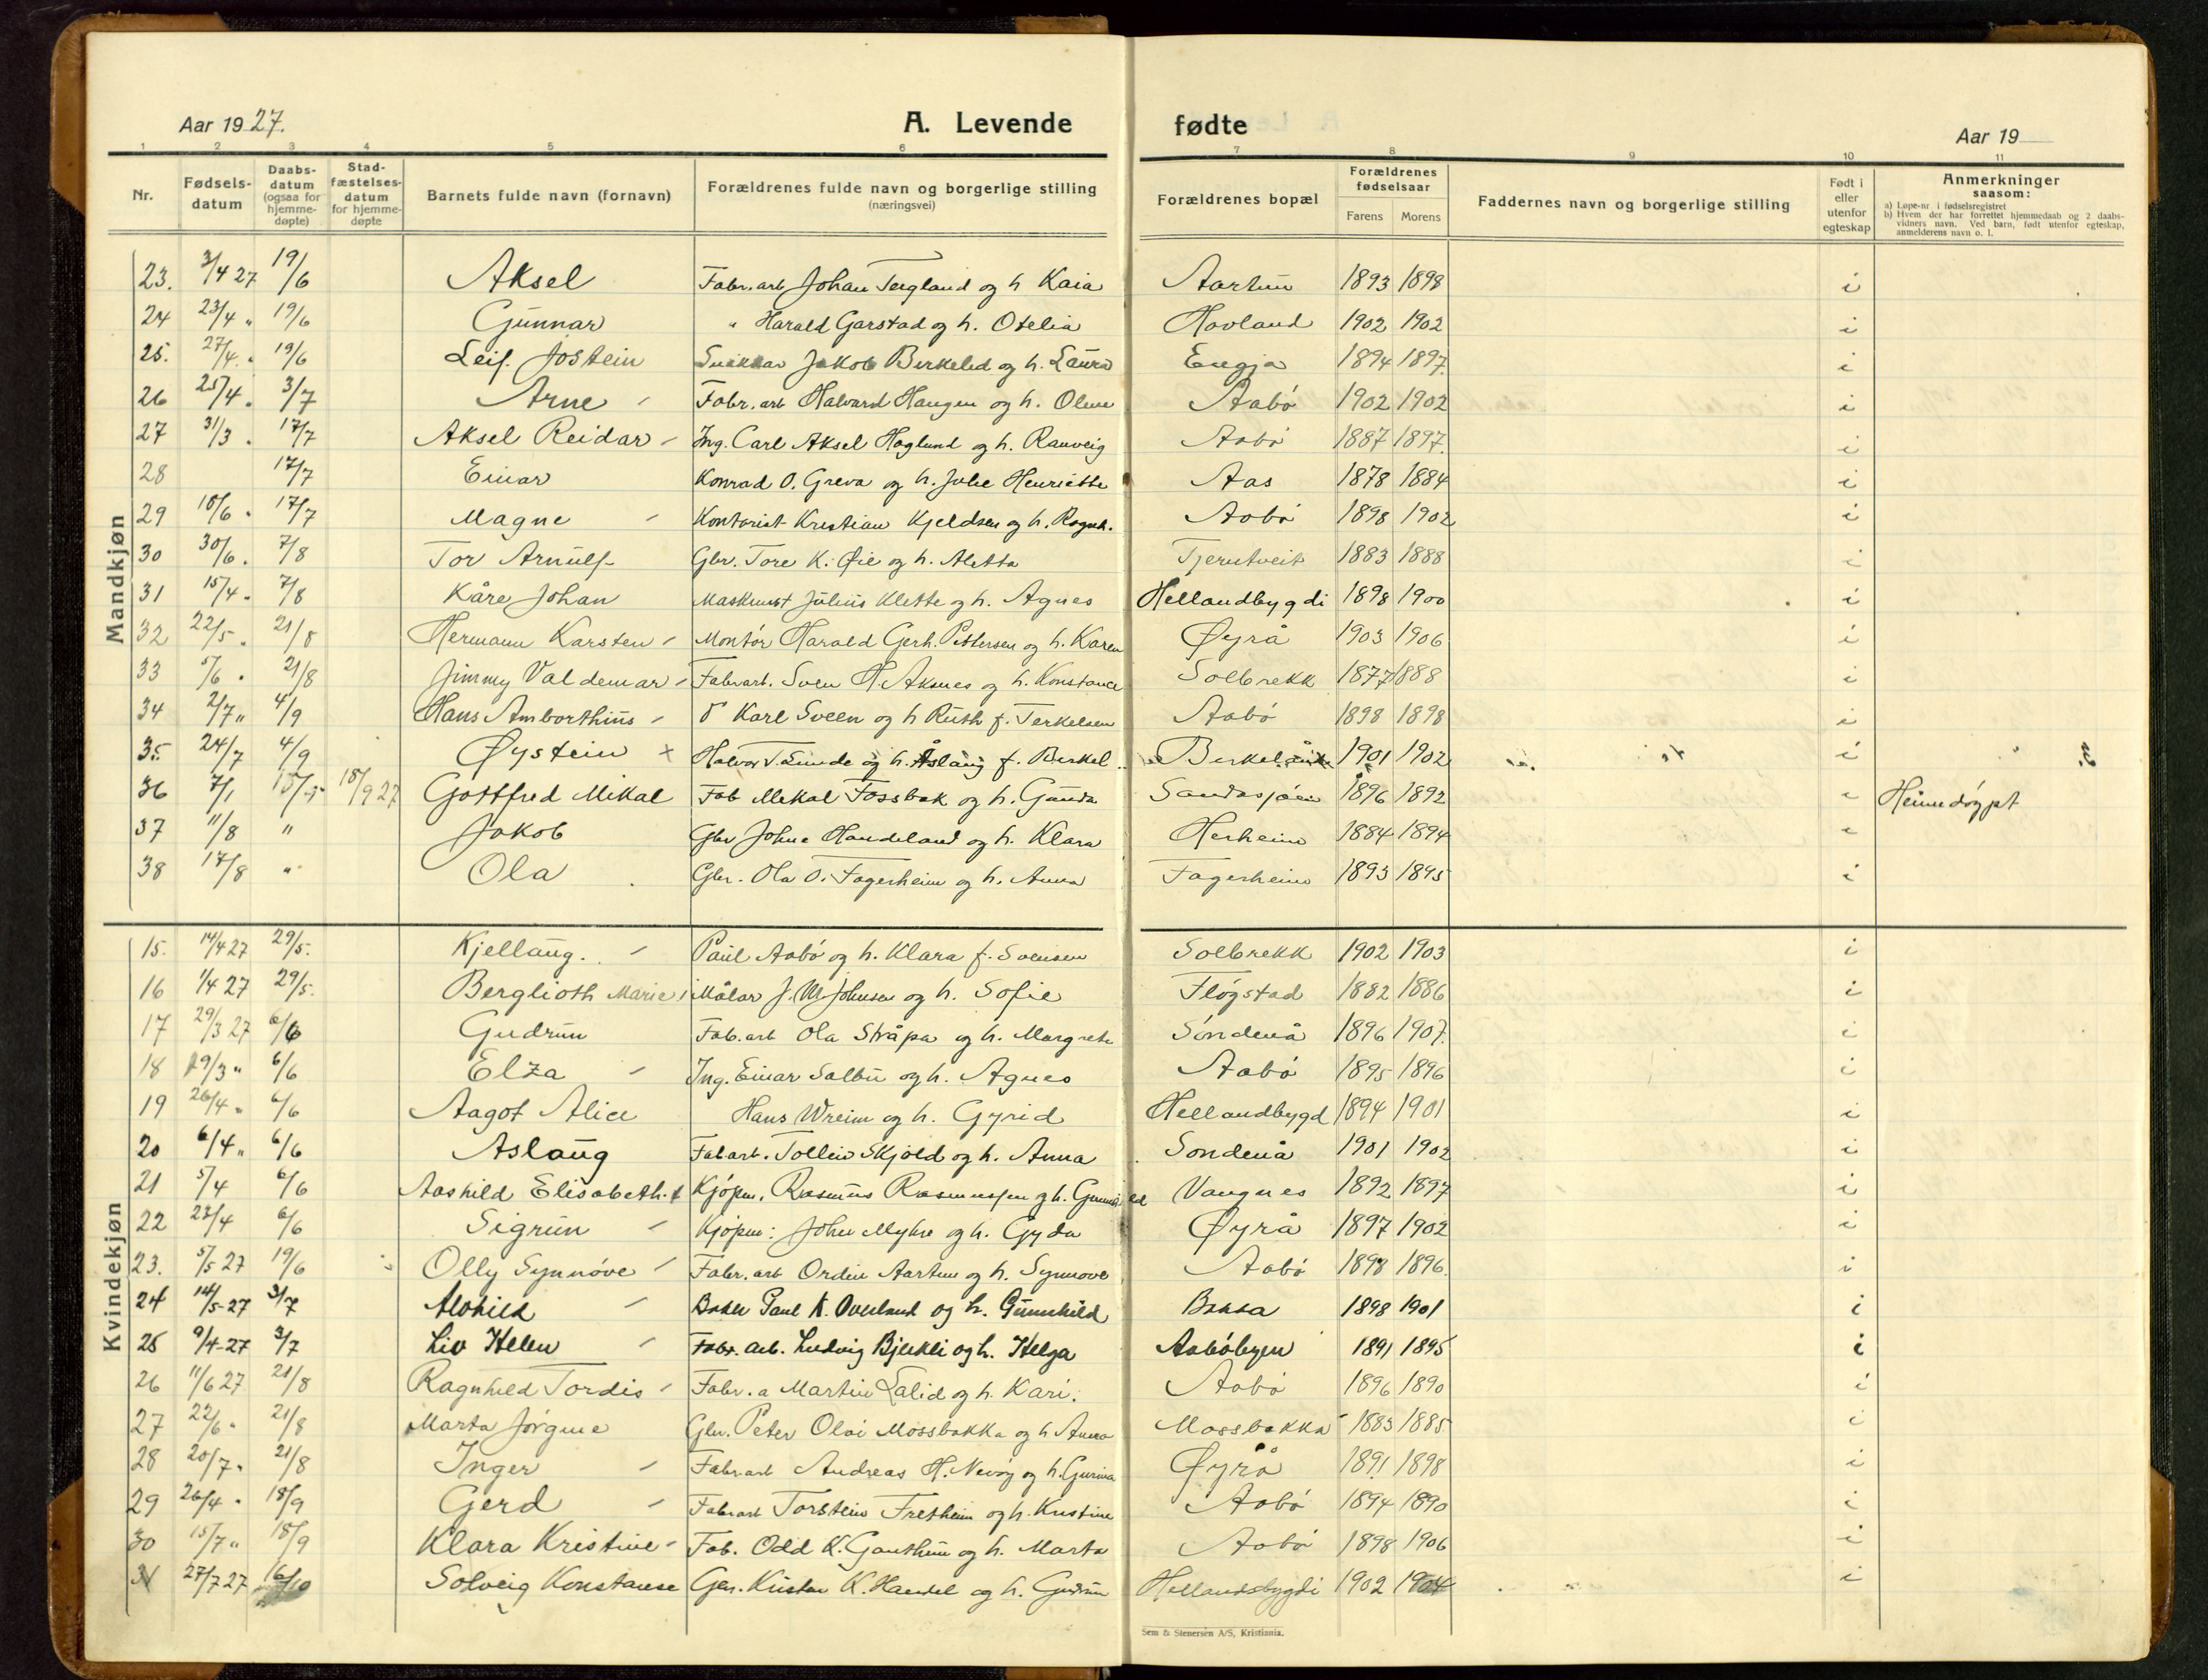 Aar 1927.
A. Levende fødte
Aar 19
1 2 3 4 5 6 7 8 9 10 11
Nr.
Fødsels-datum
Daabs-datum (ogsaa for hjemme-døpte)
Stad-fæstelses-datum for hjemme-døpte
Barnets fulde navn (fornavn)
Forældrenes fulde navn og borgerlige stilling (næringsvei)
Forældrenes bopæl
Forældrenes fødselsaar
Farens Morens
Faddernes navn og borgerlige stilling
Født i eller utenfor egteskap
Anmerkninger
saasom:
a) Løpe-nr. i fødselsregistret
b) Hvem der har forrettet hjemmedaab og 2 daabs-vidners navn. Ved barn, født utenfor egteskap, anmelderens navn o. l.
Mandkjøn
23. 3/4 27 19/6 Aksel Fabr. arb Johan Tengland og h Kaia Aartun 1893 1898 i
24 23/4 " 19/6 Gunnar " Harald Garstad og h. Otelia Hovland 1902 1902 i
25. 27/4 " 19/6 Leif Jostein Snikkar Jakob Birkeled og h. Laura Eugja 1894 1897 i
26 25/4 " 3/7 Arne Fabr. arb Halvard Haugen og h. Oline Aabø 1902 1902 i
27 31/3 " 17/7 Aksel Reidar Ing. Carl Aksel Høglund og h. Ranveig Aabø 1887 1897 i
28 17/7 Einar Konrad O. Greva og h. Julie Henriette Aas 1878 1884 i
29 18/6 " 17/7 Magne Kontorist Kristian Kjeldsen og h. Ragnh. Aabø 1898 1902 i
30 30/6 " 7/8 Tor Arnulf Gbr. Tore K. Øie og h. Aletta Tjerutveit 1883 1888 i
31 15/4 " 7/8 Kåre Johan Maskinist Julius Klette og h. Agnes Hellandbygdi 1898 1900 i
32 22/5 " 21/8 Hermann Karsten Montør Harald Gerh. Pettersen og h. Karen Øyrå 1903 1906 i
33 5/6 " 21/8 Jimmy Valdemar Fabr. arb. Sven H. Aksnes og h. Konstance Solbrekk 1877 1888 i
34 2/7 " 4/9 Hans Amborthius Karl Sveen og h Ruth f. Terkelsen Aabø 1898 1898 i
35. 24/7 4/9 Øystein x Halvor T. Lunde og h. Åslaug f. Birkel 1901 1902 i
36 7/1 18/9 27 Gottfred Mikal Fab Mekal Fossbak og h. Gunda Sandasjøen 1896 1892 Heimedøypt
37 11/8 " Jakob Gbr Johne Handeland og h. Klara Herheim 1884 1894
38 17/8 " Ola Gbr. Ola O. Fagerheim og h. Anna Fagerheim 1893 1895 i
Kvindekjøn
15. 14/4 27 29/5. Kjellaug. Paul Aabø og h. Klara f. Svensen Solbrekk 1902 1903 i
16 1/4 27 29/5. Berglioth Marie Målar J. M. Johnsen og h. Sofie Fløgstad 1882 1886 i
17 29/3 27 6/6 Gudrun Fab. arb Ola Stråpa og h. Margrete Søndenå 1896 1907 i
18 19/3 " 6/6 Elza Ing. Einar Salbu og h. Agnes Aabø 1895 1896 i
19 26/4 " 6/6 Aagot Alice Hans Wreim og h. Gyrid Hellandbygd 1894 1901 i
20 6/4 " 6/6 Aslaug Fab arb. Tolleiv Skjold og h. Anna Søndenå 1901 1902 i
21 5/4 6/6 Aashild Elisabeth Kjøpm. Rasmus Rasmussen og h. Gunnhild Vangnes 1892 1897 i
22 23/4 6/6 Sigrun Kjøpm: John Myhre og h. Gyda Øyrå 1897 1902 i
23. 5/5 27 19/6 Olly Synnøve Fabr. arb Ordin Aartun og h. Synnøve Aabø 1898 1896 i
24 14/5-27 3/7 Alvhild Baker Paul K. Overland og h. Gunnhild Baksa 1898 1901 i
25 9/4-27 3/7 Liv Helen Fabr. arb. Ludvig Bjerkli og h. Helga Aabøbyen 1891 1895 i
26 11/6 27 21/8 Ragnhild Tordis Fabr. a Martin Lalid og h. Kari. Aabø 1896 1890 i
27 22/6 " 21/8 Marta Jorgine Gbr. Peter Olai Mossbakka og h Anna Mossbakka 1883 1885 i
28 20/7 " 21/8 Inger Fabr arb Andreas H. Nevøy og h. Gurina Øyrå 1891 1898 i
29 26/4 " 18/9 Gerd Fabr arb Torstein Fretheim og h. Kristine Aabø 1894 1890 i
30 15/7 " 18/9 Klara Kristine Fab. Odd K. Gautheim og h. Marta Aabø 1898 1906 i
31 27/7 27 16/10 Solveig Konstanse Gbr. Kristen K. Handel og h. Gudrun Hellandsbygdi 1902 1904 i
Sem & Stenersen A/S, Kristiania.